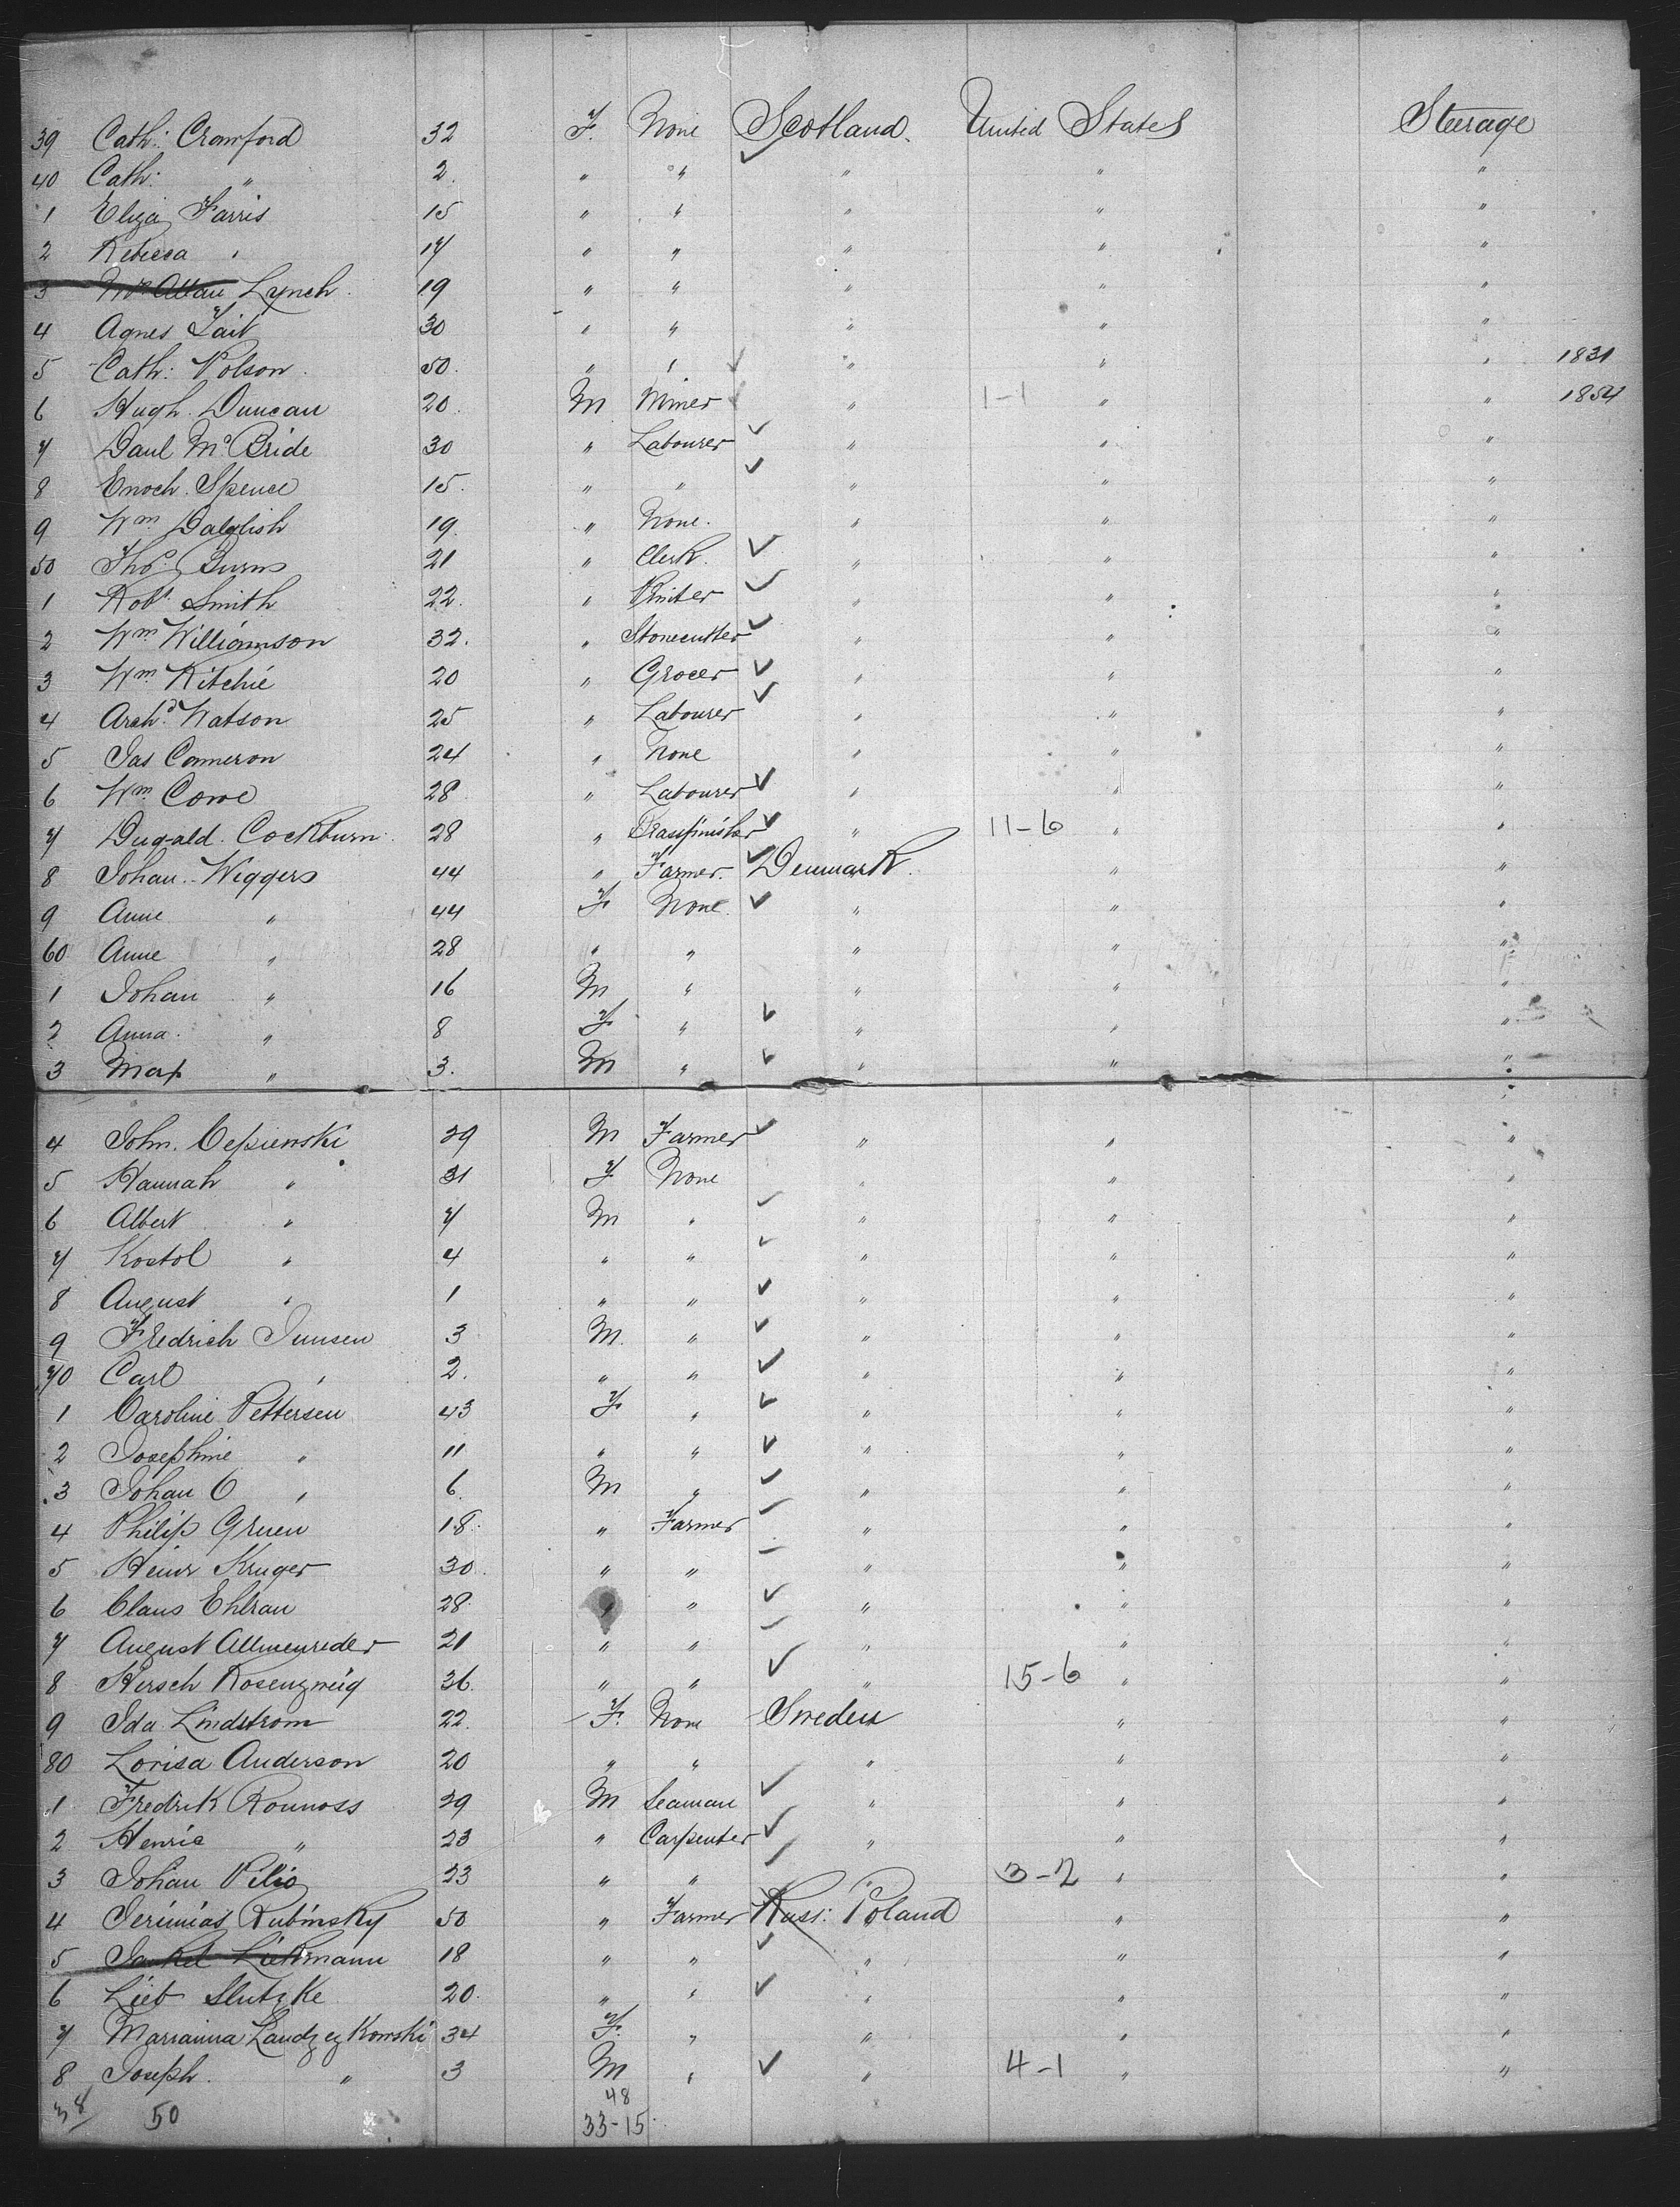 39 Cath: Crawford 32 F. None Scotland. United States Steerage
40 Cath: " 2. " " " " "
1 Eliza Farris 15 " " " " "
2 Rebecca " 17 " " " " "
3 Lynch 19 " " " " "
4 Agnes Tait 30 " " " " "
5 Cath: Polson 50. " " " " " 1831
6 Hugh Duncan 20. M Miner " 1-1 " " 1854
7 Danl McBride 30 " Labourer " " "
8 Enoch Spence 15. " " " " "
9 Wm Dalglish 19. " None. " " "
50 Thos Burns 21 " Clerk. " " "
1 Robt Smith 22. " " " "
2 Wm Williamson 32. " Stonecutter " " "
3 Wm Ritchie 20 " Grocer " " "
4 Archd Watson 25 " Labourer " " "
5 Jas Conneron 24 " None " " "
6 Wm Cowe 28 " Labourer " " "
7 Dugald Cockburn 28 " Brassfinisher " 11-6 " "
8 Johan Wiggers 44 " Farmer. Denmark. " "
9 Anne " 44 F None. " " "
60 Anne " 28 " " " " "
1 Johan " 16 M " " " "
2 Anna " 8 F " " " "
3 Max " 3. M " " " "
4 John. Cepienski 29 M Farmer " " "
5 Hannah " 31 F None " " "
6 Albert " 7 M " " " "
7 Kostol " 4 " " " " "
8 August " 1 " " " " "
9 Fredrich Junsen 3 M. " " " "
70 Carl " 2. " " " " "
1 Caroline Pettersen 43 F " " " "
2 Josephine " 11 " " " " "
3 Johan C " 6. M " " " "
4 Philip Gruen 18. " Farmer " " "
5 Heinr Kruger 30. " " " " "
6 Claus Ehlran 28 " " " " "
7 August Allmenreder 21 " " " " "
8 Hersch Rosenzweig 36. " " " 15-6 " "
9 Ida Lindstrom 22. F. None Sweden " "
80 Lovisa Anderson 20 " " " " "
1 Fredrik Ronnoss 29 M Seaman " " "
2 Henric " 23 " Carpenter " " "
3 Johan 23 " " 3-2 " "
4 Jerimias Rubinsky 50 " Farmer Russ: Poland " "
5 Jankel Liekmann 18 " " " " "
6 Lieb Slutzke 20. " " " " "
7 Marianna Landzezkowski 34 F. " " " "
8 Joseph. " 3 M " " 4-1 " "
38 50 48
33-15.